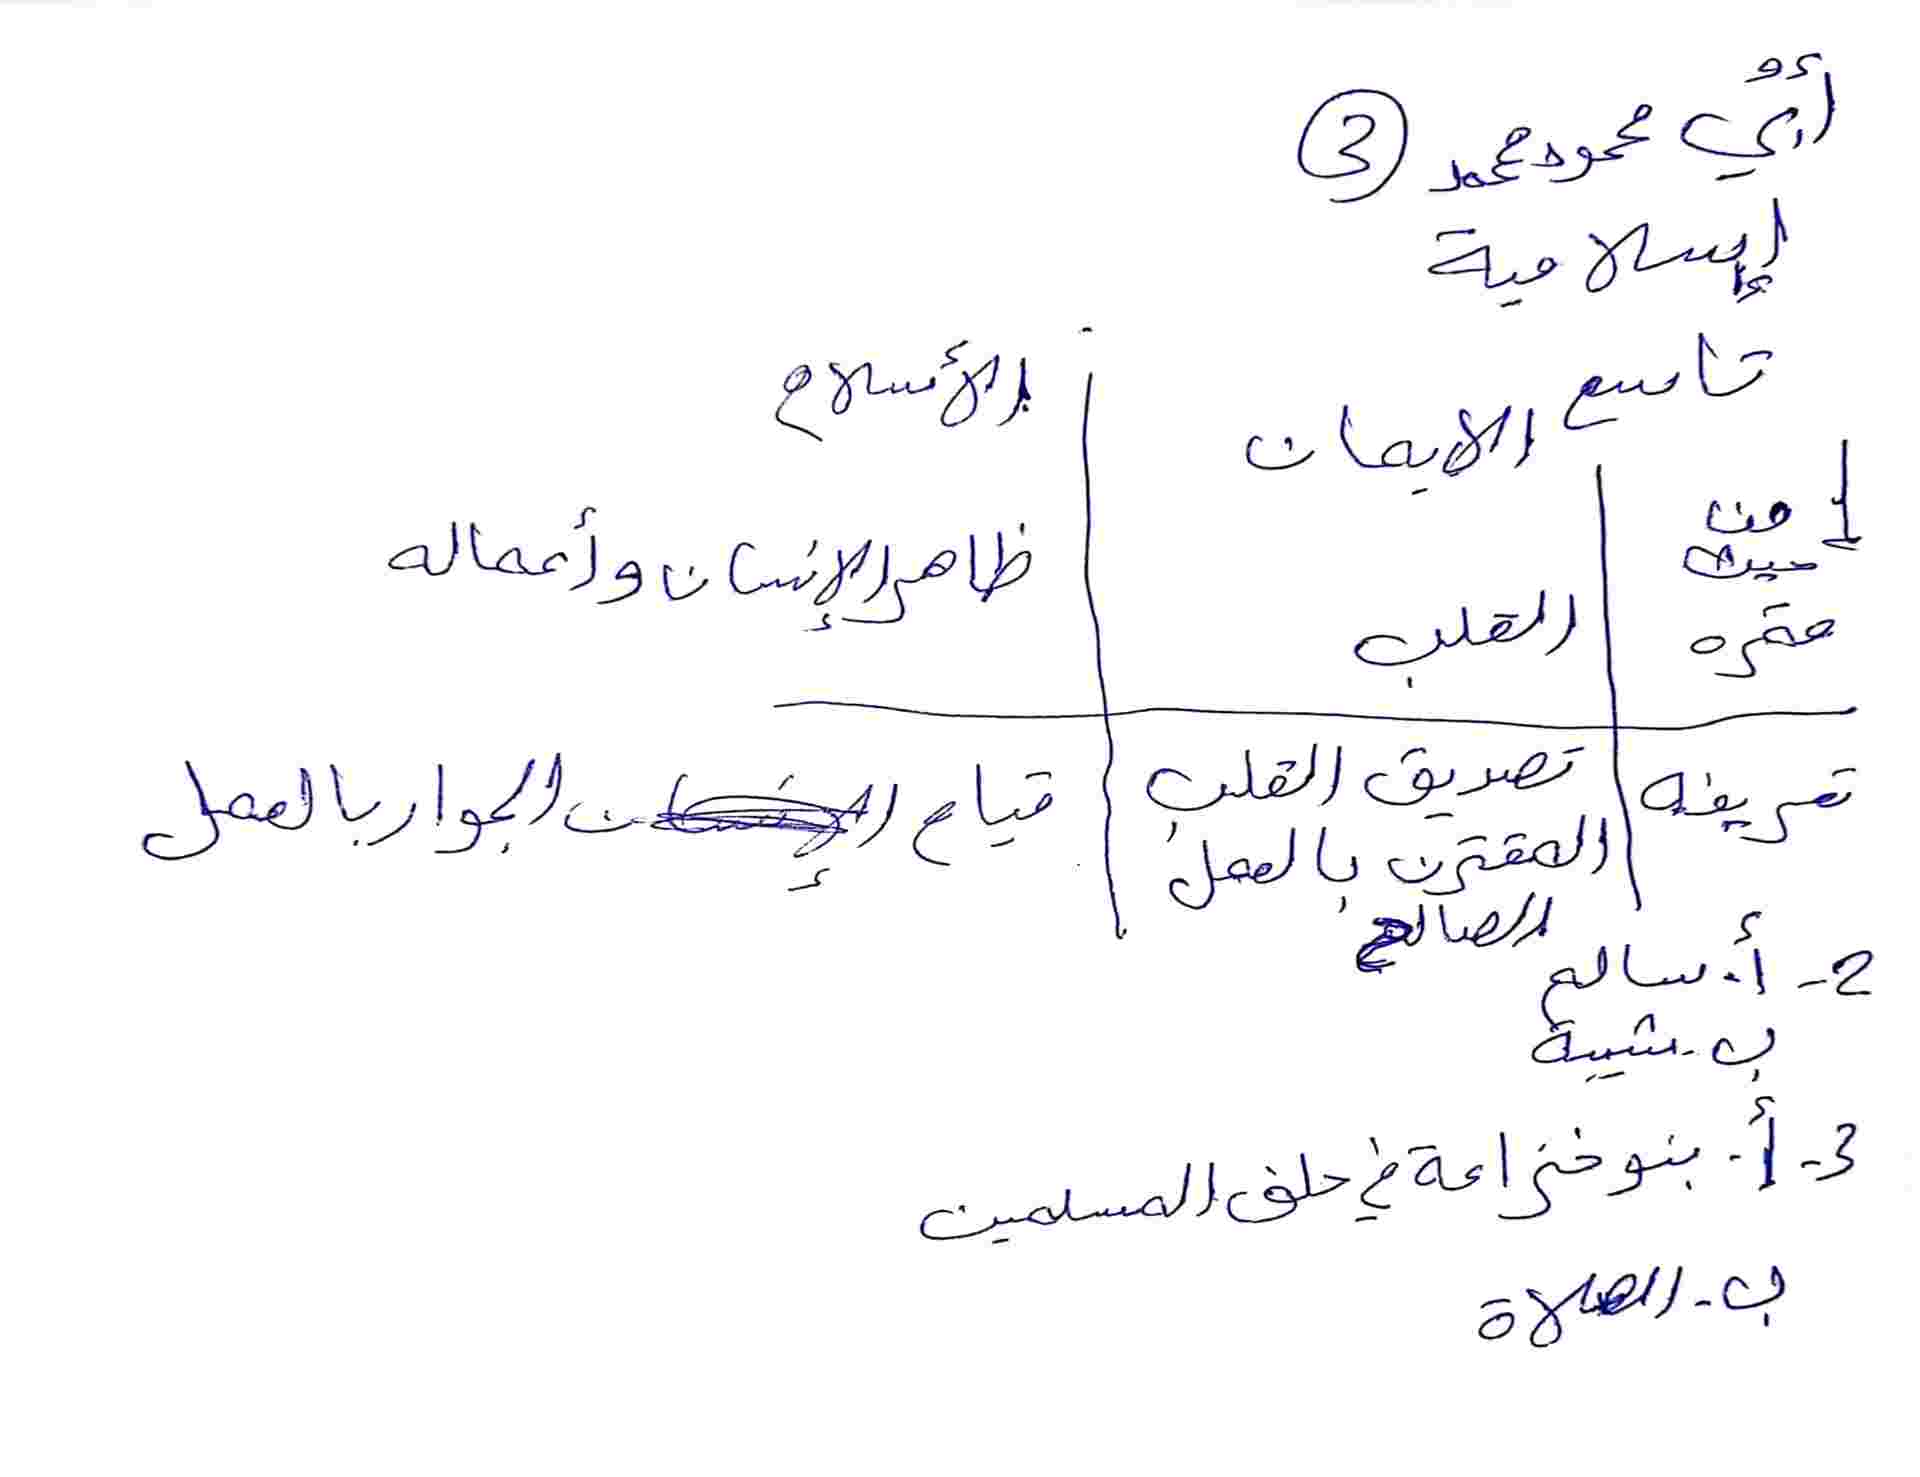 أُبي محمود محمد 3
إسلامية
تاسع
الايمان الأسلام
1- من حيث مقره القلب ظاهر الإنسان وأعماله
تعريفه تصديق القلب المقترن بالعمل الصالح قيام الجوار بالعمل
2- أ. سالم
ب- شيبة
3- أ- بنو خزاعة في حلف المسلمين
ب- الصلاة